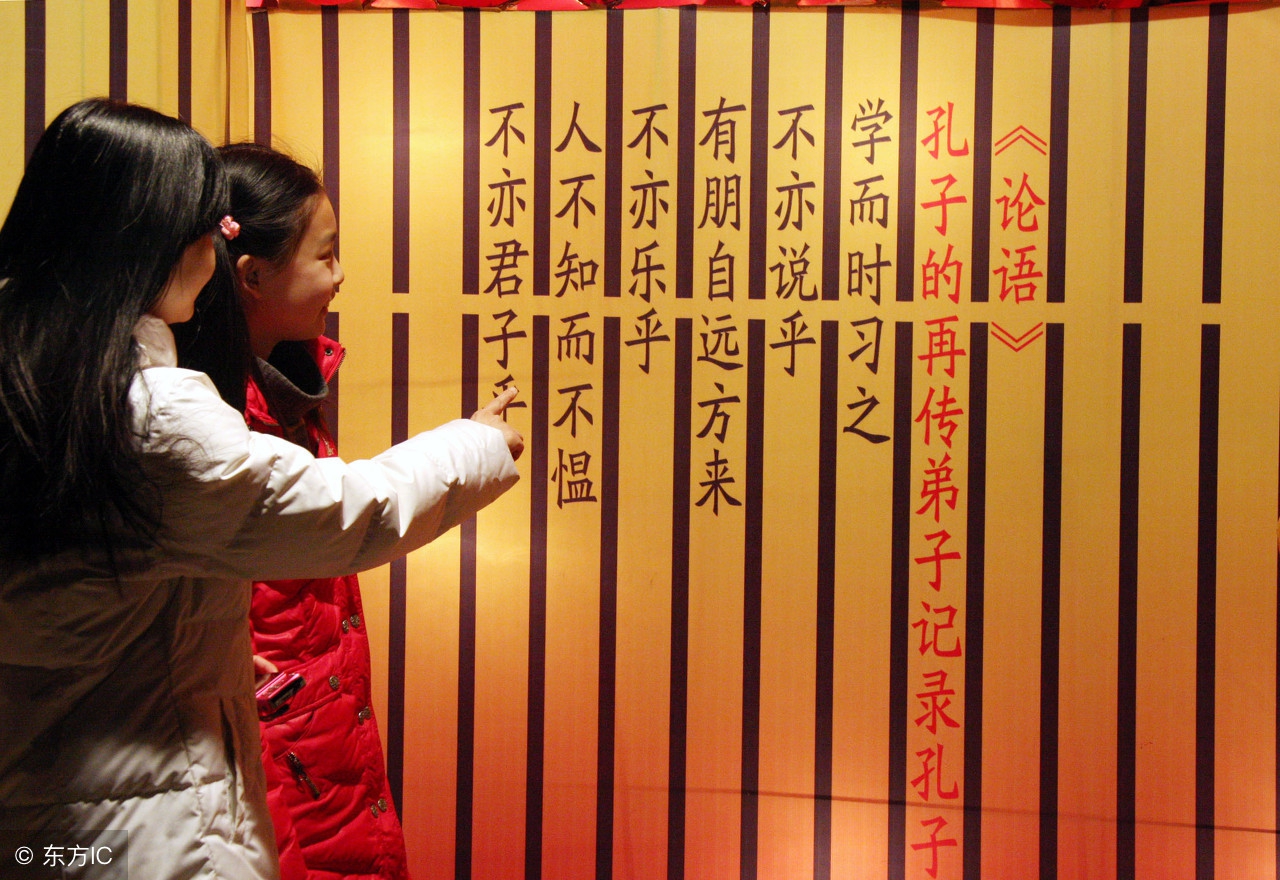 《论语》
孔子的再传弟子记录孔子
学而时习之
不亦说乎
有朋自远方来
不亦乐乎
人不知而不愠
不亦君子乎
© 东方IC